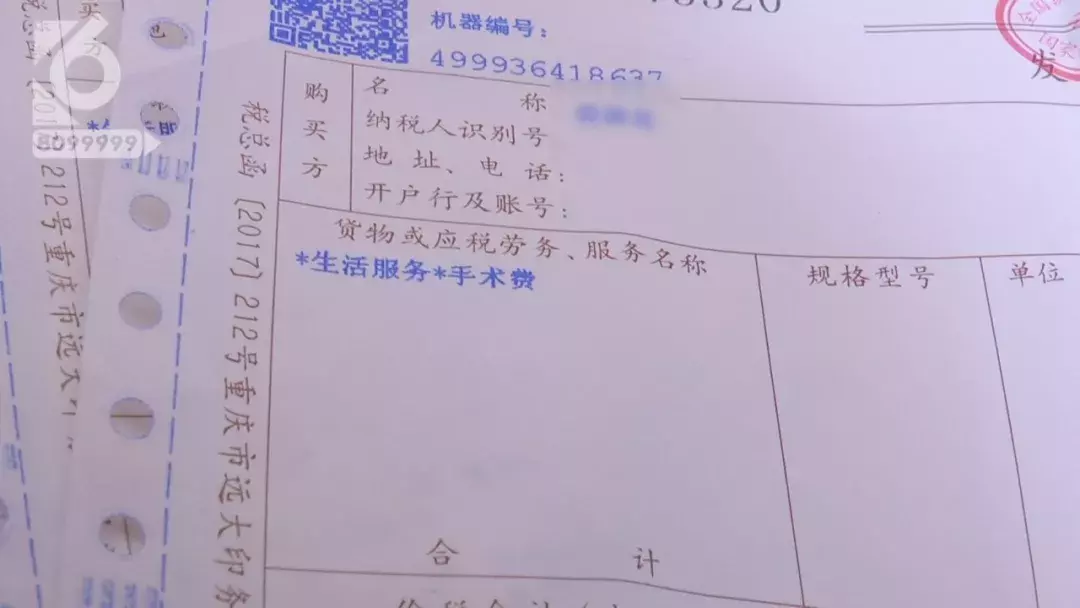 机器编号:
499936418637
全国
国家
发
购买方
名称
纳税人识别号
地址、电话:
开户行及账号:
货物或应税劳务、服务名称
规格型号
单位
*生活服务*手术费
合计
税总函〔2017〕212号重庆市远大印务
买方
212号重庆市远大
6
8099999